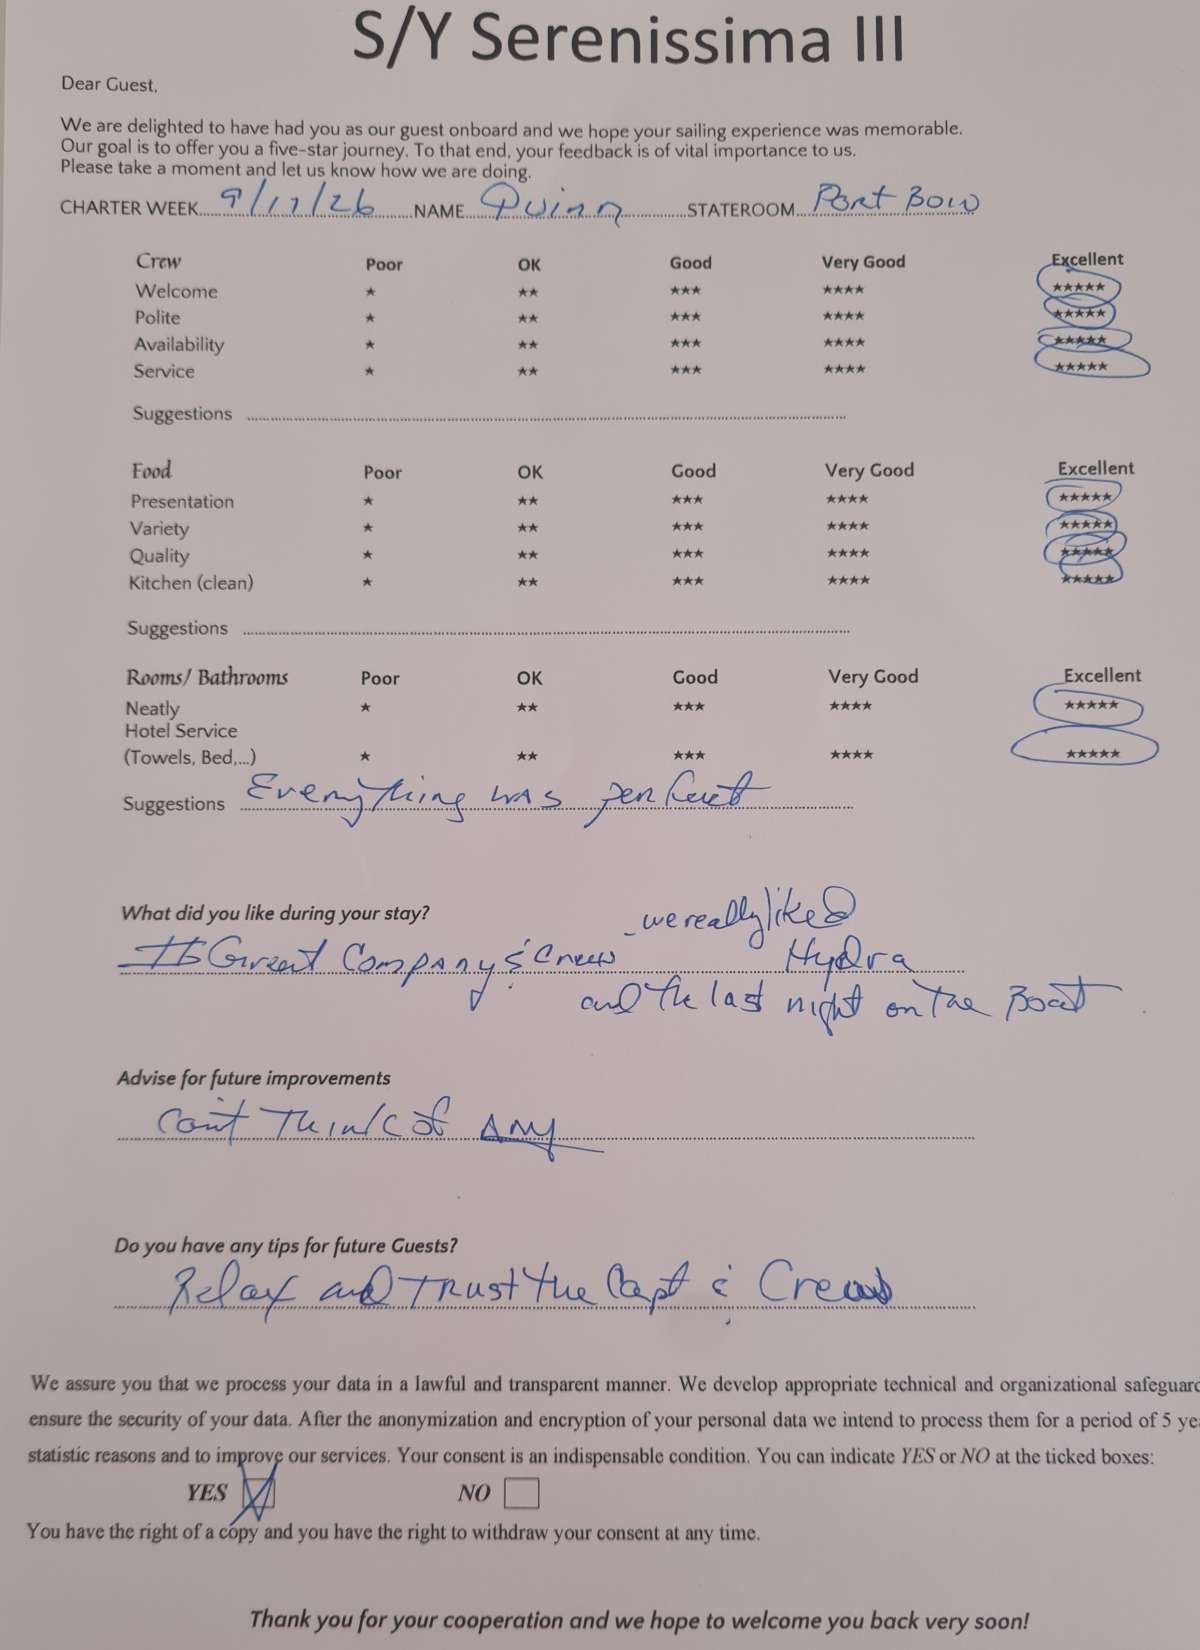 S/Y Serenissima III
Dear Guest,
We are delighted to have had you as our guest onboard and we hope your sailing experience was memorable.
Our goal is to offer you a five-star journey. To that end, your feedback is of vital importance to us.
Please take a moment and let us know how we are doing.
CHARTER WEEK 9/17/26 NAME Quinn STATEROOM Port Bow
Crew Poor OK Good Very Good Excellent
Welcome ★ ★★ ★★★ ★★★★ ★★★★★
Polite ★ ★★ ★★★ ★★★★ ★★★★★
Availability ★ ★★ ★★★ ★★★★ ★★★★★
Service ★ ★★ ★★★ ★★★★ ★★★★★
Suggestions
Food Poor OK Good Very Good Excellent
Presentation ★ ★★ ★★★ ★★★★ ★★★★★
Variety ★ ★★ ★★★ ★★★★ ★★★★★
Quality ★ ★★ ★★★ ★★★★ ★★★★★
Kitchen (clean) ★ ★★ ★★★ ★★★★ ★★★★★
Suggestions
Rooms/ Bathrooms Poor OK Good Very Good Excellent
Neatly ★ ★★ ★★★ ★★★★ ★★★★★
Hotel Service
(Towels, Bed,...) ★ ★★ ★★★ ★★★★ ★★★★★
Suggestions Everything was perfect
What did you like during your stay?
- we really liked
Great Company & Crew Hydra
and the last night on the Boat
Advise for future improvements
Can't Think of Any
Do you have any tips for future Guests?
Relax and Trust the Capt & Crew
We assure you that we process your data in a lawful and transparent manner. We develop appropriate technical and organizational
ensure the security of your data. After the anonymization and encryption of your personal data we intend to process them for a period of 5
statistic reasons and to improve our services. Your consent is an indispensable condition. You can indicate YES or NO at the ticked boxes:
YES NO
You have the right of a copy and you have the right to withdraw your consent at any time.
Thank you for your cooperation and we hope to welcome you back very soon!